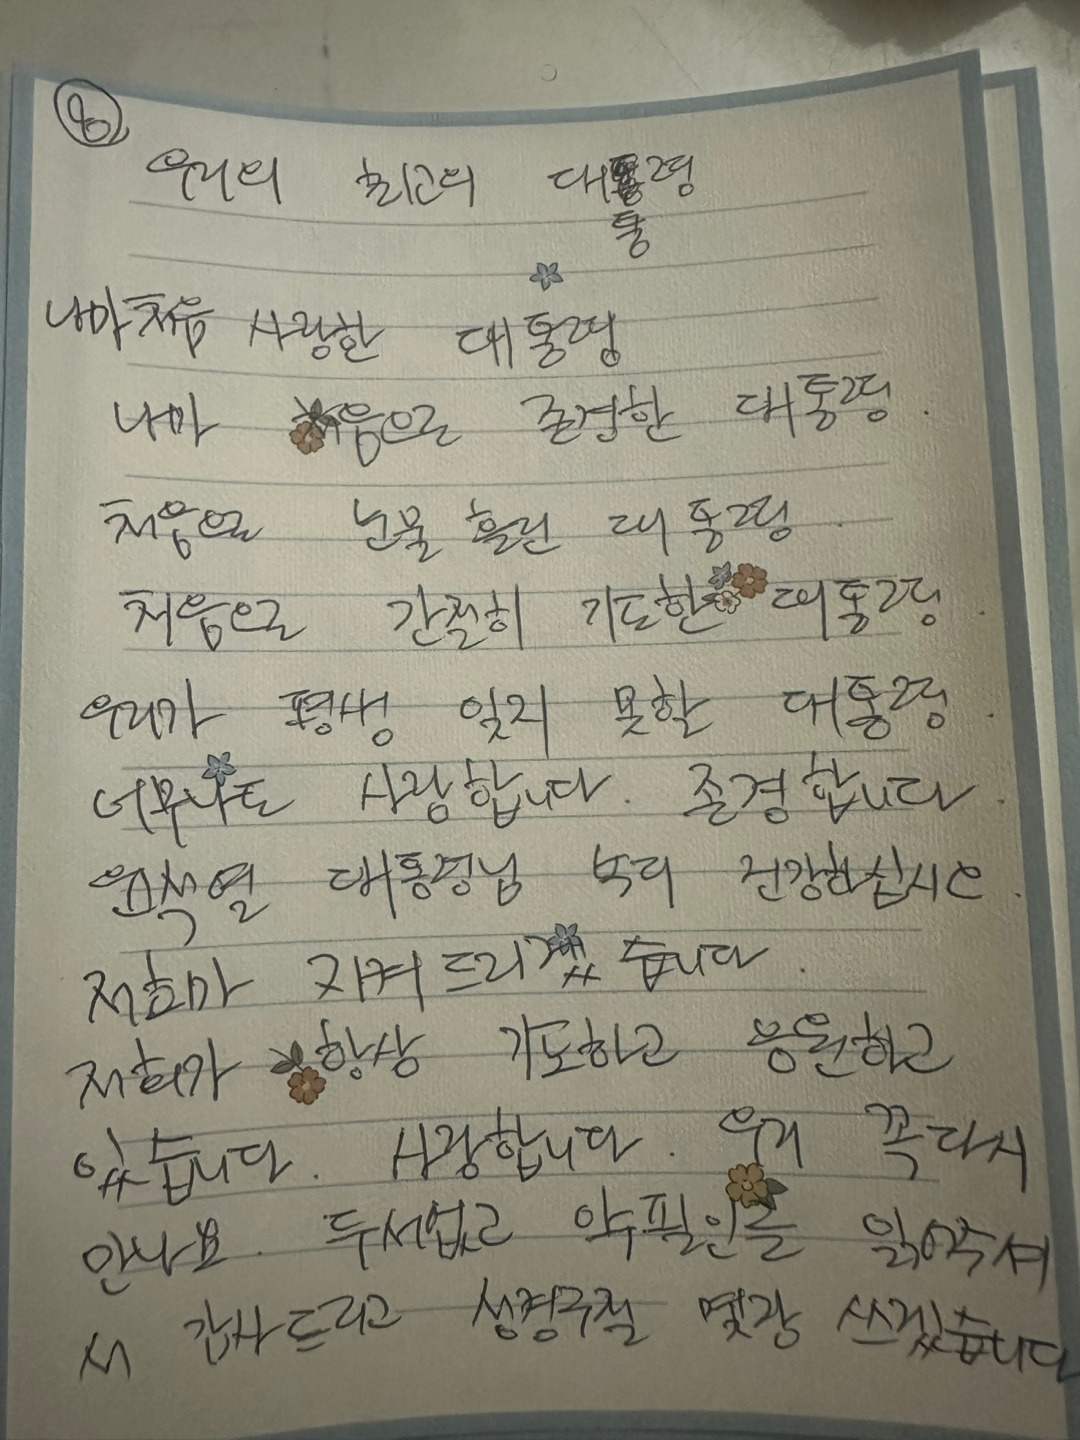 우리의 최고의 대통령
통
나마 처음 사랑한 대통령
나마 처음으로 존경한 대통령.
처음으로 눈물 흘린 대통령.
처음으로 간절히 기도한 대통령.
우리가 평생 잊지 못할 대통령.
너무나도 사랑합니다. 존경합니다.
윤석열 대통령님 부디 건강하십시오.
저희마 지켜드리겠습니다.
저희가 항상 기도하고 응원하고
있습니다. 사랑합니다. 우리 꼭 다시
만나요. 두서없고 악필인글 읽어주셔
서 감사드리고 성경구절 몇장 쓰겠습니다